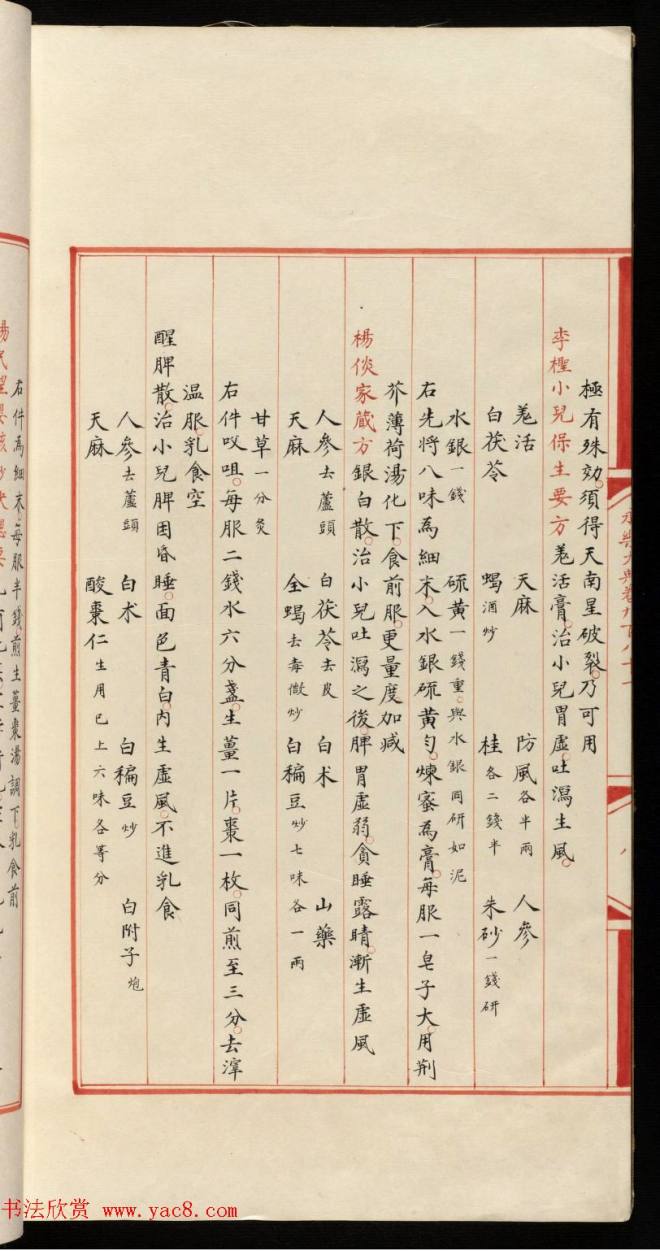 極有殊効。須得天南星破裂。乃可用
李檉小兒保生要方羗活膏。治小兒胃虛。吐瀉生風。
羗活 天麻 防風各半兩 人參
白茯苓 蝎酒炒 桂各二錢半 朱砂一錢研
水銀一錢 硫黄一錢重。與水銀同研如泥
右先將八味為細末。入水銀硫黄勻。煉蜜為膏。每服一皂子大。用荆
芥薄荷湯化下。食前服。更量度加减
楊倓家藏方銀白散。治小兒吐瀉之後。脾胃虛弱。貪睡露睛。漸生虛風
人參去蘆頭 白茯苓去皮 白术 山藥
天麻 全蝎去毒微炒 白稨豆炒七味各一兩
甘草一分炙
右件㕮咀。每服二錢水六分盞。生薑一片。棗一枚。同煎至三分。去滓
温服。乳食空
醒脾散。治小兒脾困昏睡。面色青白。内生虛風。不進乳食
人參去蘆頭 白术 白稨豆炒 白附子炮
天麻 酸棗仁生用已上六味各等分
右件為細末。每服半錢。煎生薑棗湯調下。乳食前
书法欣赏 www.yac8.com